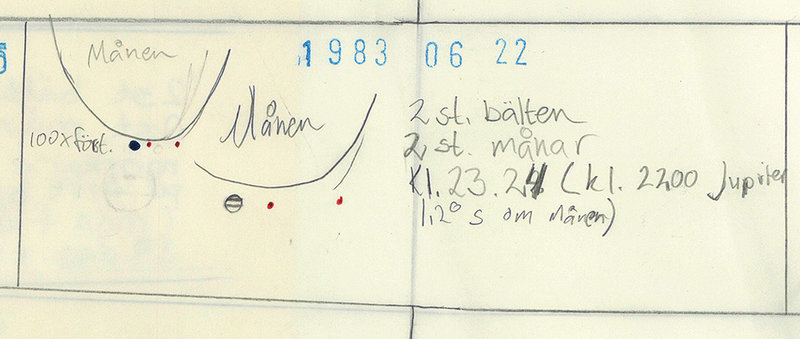 Månen
1983 06 22
Månen
100x först.
2 st. bälten
2 st. månar
Kl. 23.24 (kl. 2200 Jupiter
1,2° s om Månen)